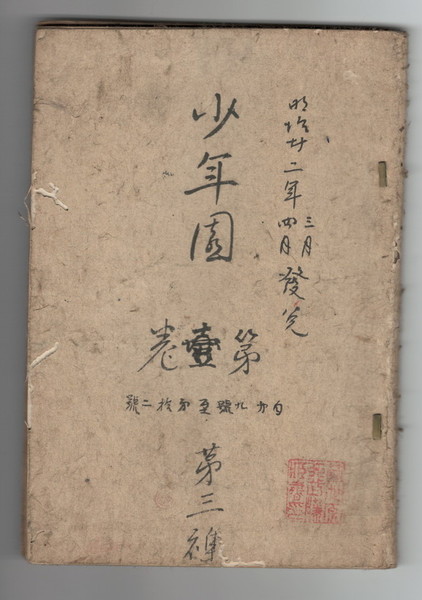 明治廿二年三月四月發兌
少年園
第壹卷
自第九號至第拾二號
第三襍